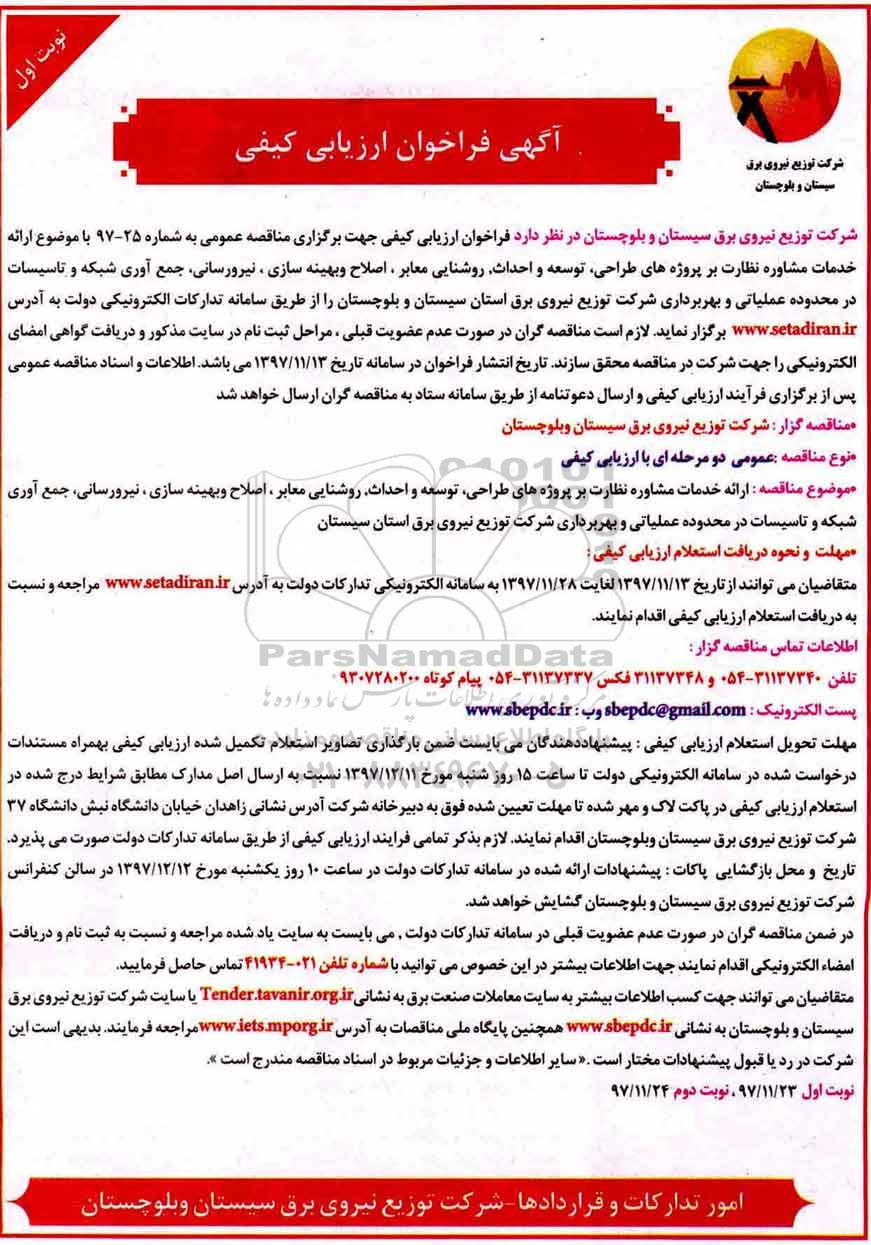 نوبت اول
شرکت توزیع نیروی برق
سیستان و بلوچستان
آگهی فراخوان ارزیابی کیفی
شرکت توزیع نیروی برق سیستان و بلوچستان در نظر دارد فراخوان ارزیابی کیفی جهت برگزاری مناقصه عمومی به شماره ۲۵-۹۷ با موضوع ارائه
خدمات مشاوره نظارت بر پروژه های طراحی، توسعه و احداث, روشنایی معابر ، اصلاح وبهینه سازی ، نیرورسانی، جمع آوری شبکه و تاسیسات
در محدوده عملیاتی و بهربرداری شرکت توزیع نیروی برق استان سیستان و بلوچستان را از طریق سامانه تدارکات الکترونیکی دولت به آدرس
www.setadiran.ir برگزار نماید. لازم است مناقصه گران در صورت عدم عضویت قبلی ، مراحل ثبت نام در سایت مذکور و دریافت گواهی امضای
الکترونیکی را جهت شرکت در مناقصه محقق سازند. تاریخ انتشار فراخوان در سامانه تاریخ ۱۳۹۷/۱۱/۱۳ می باشد. اطلاعات و اسناد مناقصه عمومی
پس از برگزاری فرآیند ارزیابی کیفی و ارسال دعوتنامه از طریق سامانه ستاد به مناقصه گران ارسال خواهد شد
•مناقصه گزار : شرکت توزیع نیروی برق سیستان وبلوچستان
•نوع مناقصه :عمومی دو مرحله ای با ارزیابی کیفی
•موضوع مناقصه : ارائه خدمات مشاوره نظارت بر پروژه های طراحی، توسعه و احداث, روشنایی معابر ، اصلاح وبهینه سازی ، نیرورسانی، جمع آوری
شبکه و تاسیسات در محدوده عملیاتی و بهربرداری شرکت توزیع نیروی برق استان سیستان
•مهلت و نحوه دریافت استعلام ارزیابی کیفی :
متقاضیان می توانند از تاریخ ۱۳۹۷/۱۱/۱۳ لغایت ۱۳۹۷/۱۱/۲۸ به سامانه الکترونیکی تدارکات دولت به آدرس www.setadiran.ir مراجعه و نسبت
به دریافت استعلام ارزیابی کیفی اقدام نمایند.
اطلاعات تماس مناقصه گزار :
ParsNamadData
تلفن ۳۱۱۳۷۳۴۰-۰۵۴ و ۳۱۱۳۷۳۴۸ فکس ۳۱۱۳۷۳۳۷-۰۵۴ پیام کوتاه ۹۳۰۷۲۸۰۲۰۰
پست الکترونیک : sbepdc@gmail.com وب : www.sbepdc.ir
مهلت تحویل استعلام ارزیابی کیفی : پیشنهاددهندگان می بایست ضمن بارگذاری تصاویر استعلام تکمیل شده ارزیابی کیفی بهمراه مستندات
درخواست شده در سامانه الکترونیکی دولت تا ساعت ۱۵ روز شنبه مورخ ۱۳۹۷/۱۲/۱۱ نسبت به ارسال اصل مدارک مطابق شرایط درج شده در
استعلام ارزیابی کیفی در پاکت لاک و مهر شده تا مهلت تعیین شده فوق به دبیرخانه شرکت آدرس نشانی زاهدان خیابان دانشگاه نبش دانشگاه ۳۷
شرکت توزیع نیروی برق سیستان وبلوچستان اقدام نمایند. لازم بذکر تمامی فرایند ارزیابی کیفی از طریق سامانه تدارکات دولت صورت می پذیرد.
تاریخ و محل بازگشایی پاکات : پیشنهادات ارائه شده در سامانه تدارکات دولت در ساعت ۱۰ روز یکشنبه مورخ ۱۳۹۷/۱۲/۱۲ در سالن کنفرانس
شرکت توزیع نیروی برق سیستان و بلوچستان گشایش خواهد شد.
در ضمن مناقصه گران در صورت عدم عضویت قبلی در سامانه تدارکات دولت , می بایست به سایت یاد شده مراجعه و نسبت به ثبت نام و دریافت
امضاء الکترونیکی اقدام نمایند جهت اطلاعات بیشتر در این خصوص می توانید با شماره تلفن ۰۲۱-۴۱۹۳۴ تماس حاصل فرمایید.
متقاضیان می توانند جهت کسب اطلاعات بیشتر به سایت معاملات صنعت برق به نشانی Tender.tavanir.org.ir یا سایت شرکت توزیع نیروی برق
سیستان و بلوچستان به نشانی www.sbepdc.ir همچنین پایگاه ملی مناقصات به آدرس www.iets.mporg.ir مراجعه فرمایند. بدیهی است این
شرکت در رد یا قبول پیشنهادات مختار است .« سایر اطلاعات و جزئیات مربوط در اسناد مناقصه مندرج است ».
نوبت اول ۹۷/۱۱/۲۳ ، نوبت دوم ۹۷/۱۱/۲۴
امور تدارکات و قراردادها-شرکت توزیع نیروی برق سیستان وبلوچستان